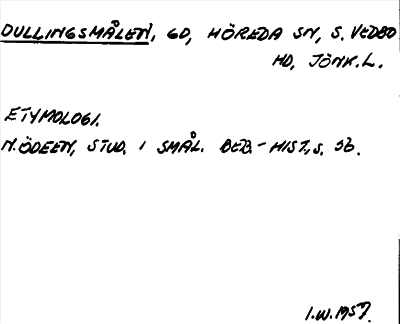 DULLINGSMÅLEN, GD, HÖREDA SN, S. VEDBO
HD, JÖNK.L.
ETYMOLOGI.
N.ÖDEEN, STUD. I SMÅL. BEB.-HIST., S. 36.
I.W.1957.